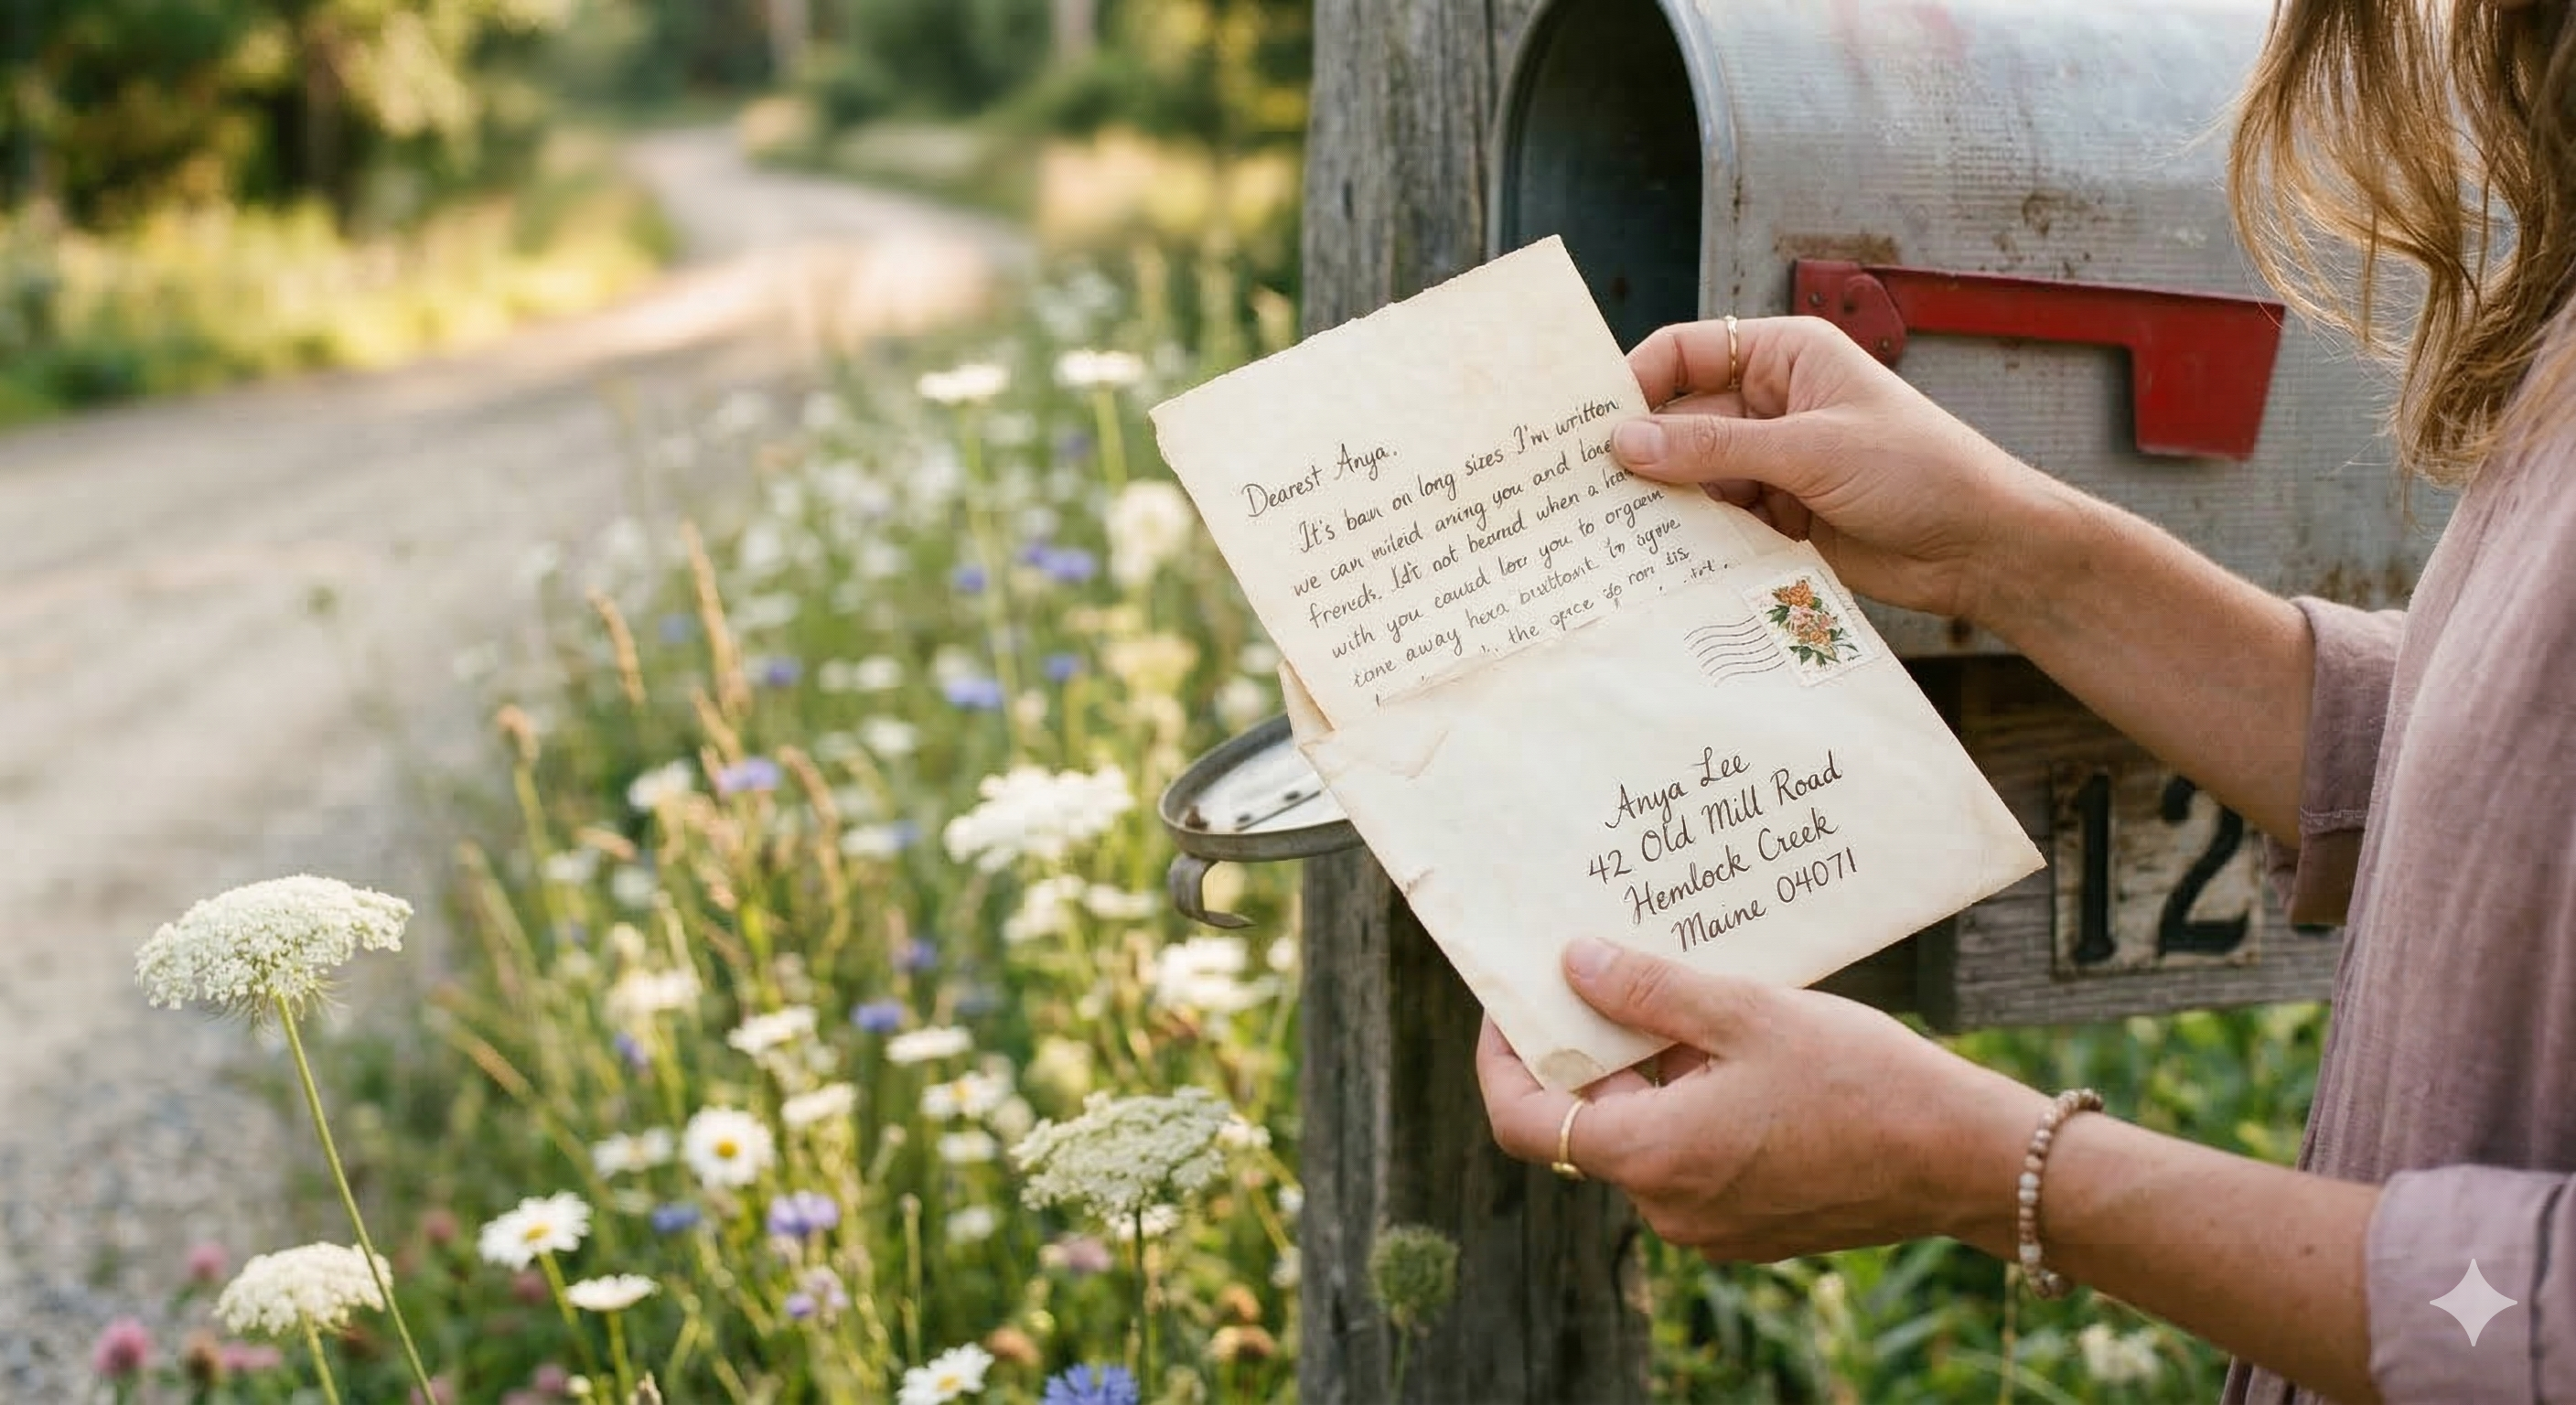 Dearest Anya.
It's baun on long sizes I'm written
we can mileid aning you and lone
frends. Idt not beamd when a
with you cauld low you to orgaem
tane away hera buttont to agove
the space do non sis
Anya Lee
42 Old Mill Road
Hemlock Creek
Maine 04071
12